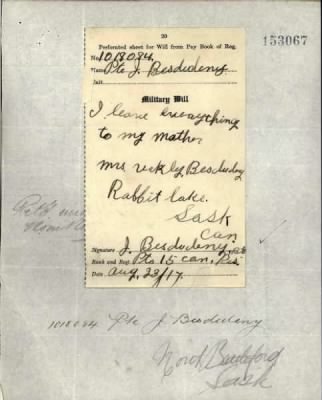 20
153067
Perforated sheet for Will from Pay Book of Reg.
No. 1018084.
Name Pte J. Besdudeny
Military Will
I leave everything
to my mother
mrs Besdudeny
Rabbit lake.
Sask
Can.
Signature J. Besdudeny
Rank and Regt. Pte 15 can. Res
Date Aug, 23/17.
1018084 Pte J Besdudeny
North Battleford
Sask